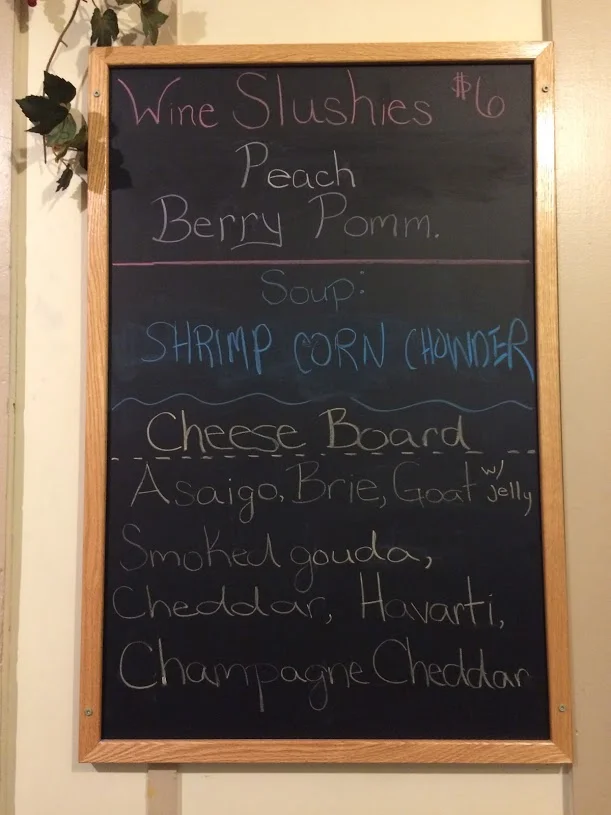 Wine Slushies $6
Peach
Berry Pomm.
Soup:
SHRIMP CORN CHOWDER
Cheese Board
Asaigo, Brie, Goat w/ jelly
Smoked gouda,
Cheddar, Havarti,
Champagne Cheddar